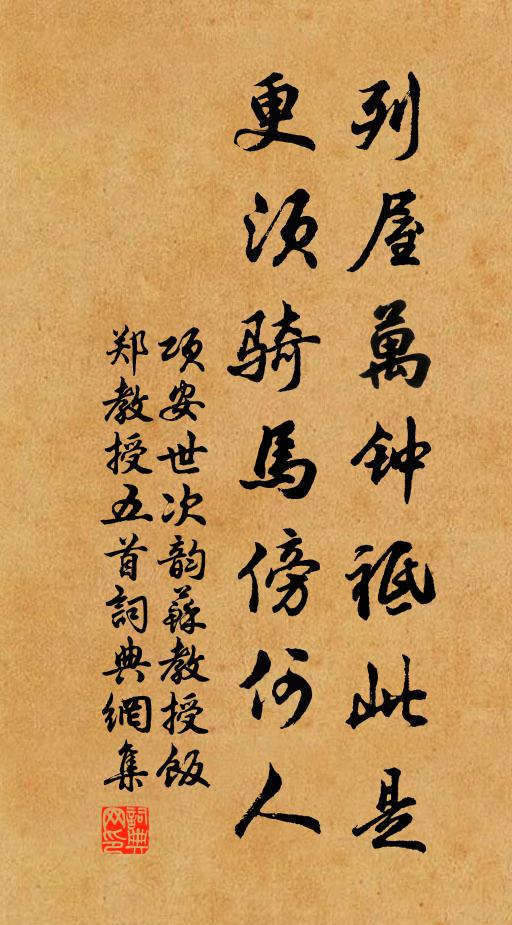 列屋萬钟祗此是
更须骑馬傍何人
项安世次韵蘇教授飯
郑教授五首詞典網集
詞典网印